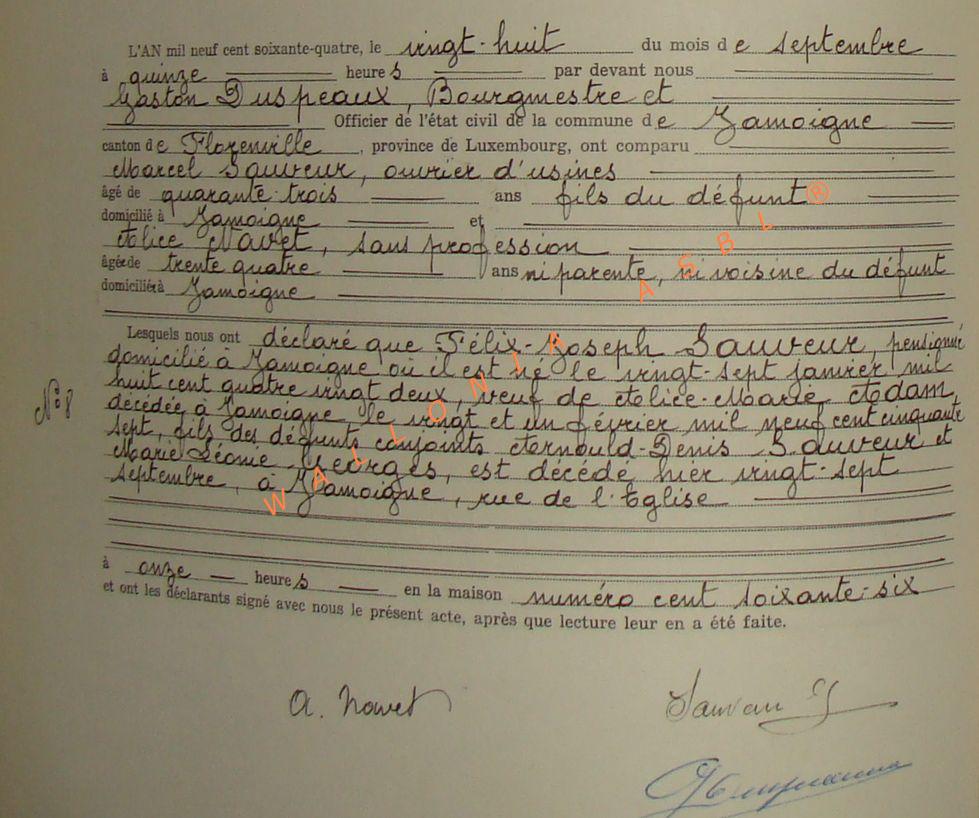 L'AN mil neuf cent soixante-quatre, le vingt-huit du mois de septembre
à quinze heures par devant nous
Gaston Duspeaux, Bourgmestre et
Officier de l'état civil de la commune de Jamoigne
canton de Florenville, province de Luxembourg, ont comparu
Marcel Sauveur, ouvrier d'usines
âgé de quarante-trois ans fils du défunt
domicilié à Jamoigne et
Alice Navet, sans profession
âgée de trente quatre ans ni parente, ni voisine du défunt
domiciliée à Jamoigne
Lesquels nous ont déclaré que Félix-Joseph Sauveur, pensionné
domicilié à Jamoigne où il est né le vingt-sept janvier mil
huit cent quatre vingt deux, veuf de Alice-Marie Adam,
décédée à Jamoigne, le vingt et un février mil neuf cent cinquante
N° 8
sept, fils des défunts conjoints Arnould-Denis Sauveur et
Marie Léonie Georges, est décédé hier vingt-sept
septembre, à Jamoigne, rue de l'Eglise
à onze heures en la maison numéro cent soixante-six
et ont les déclarants signé avec nous le présent acte, après que lecture leur en a été faite.
A. Navet
WALLONIA ASBL®